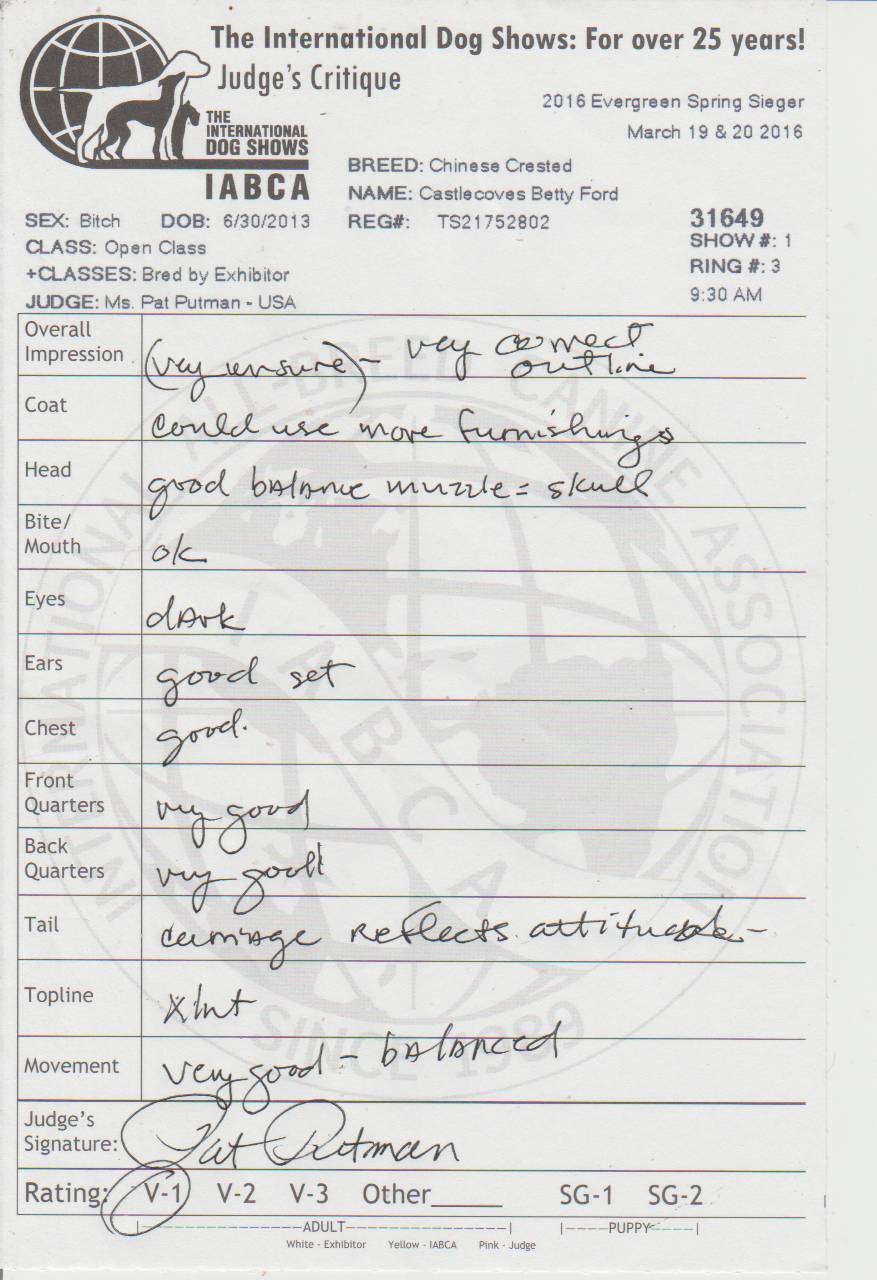 The International Dog Shows: For over 25 years!
Judge's Critique
THE
INTERNATIONAL
DOG SHOWS
IABCA
2016 Evergreen Spring Sieger
March 19 & 20 2016
BREED: Chinese Crested
NAME: Castlecoves Betty Ford
SEX: Bitch DOB: 6/30/2013 REG#: TS21752802
31649
CLASS: Open Class
SHOW #: 1
+CLASSES: Bred by Exhibitor
RING #: 3
JUDGE: Ms. Pat Putman - USA
9:30 AM
Overall
Impression
(very unsure) - very correct
outline
Coat
Could use more furnishings
Head
good balance muzzle = skull
Bite/
Mouth
ok
Eyes
dark
Ears
good set
Chest
good.
Front
Quarters
very good
Back
Quarters
very good
Tail
carriage reflects attitude -
Topline
Xlnt
Movement
Very good - balanced
Judge's
Signature:
Pat Putman
Rating: V-1 V-2 V-3 Other______ SG-1 SG-2
|----ADULT----| |----PUPPY----|
White - Exhibitor Yellow - IABCA Pink - Judge
INTERNATIONAL ALL-BREED CANINE ASSOCIATION
IABCA
SINCE 1989